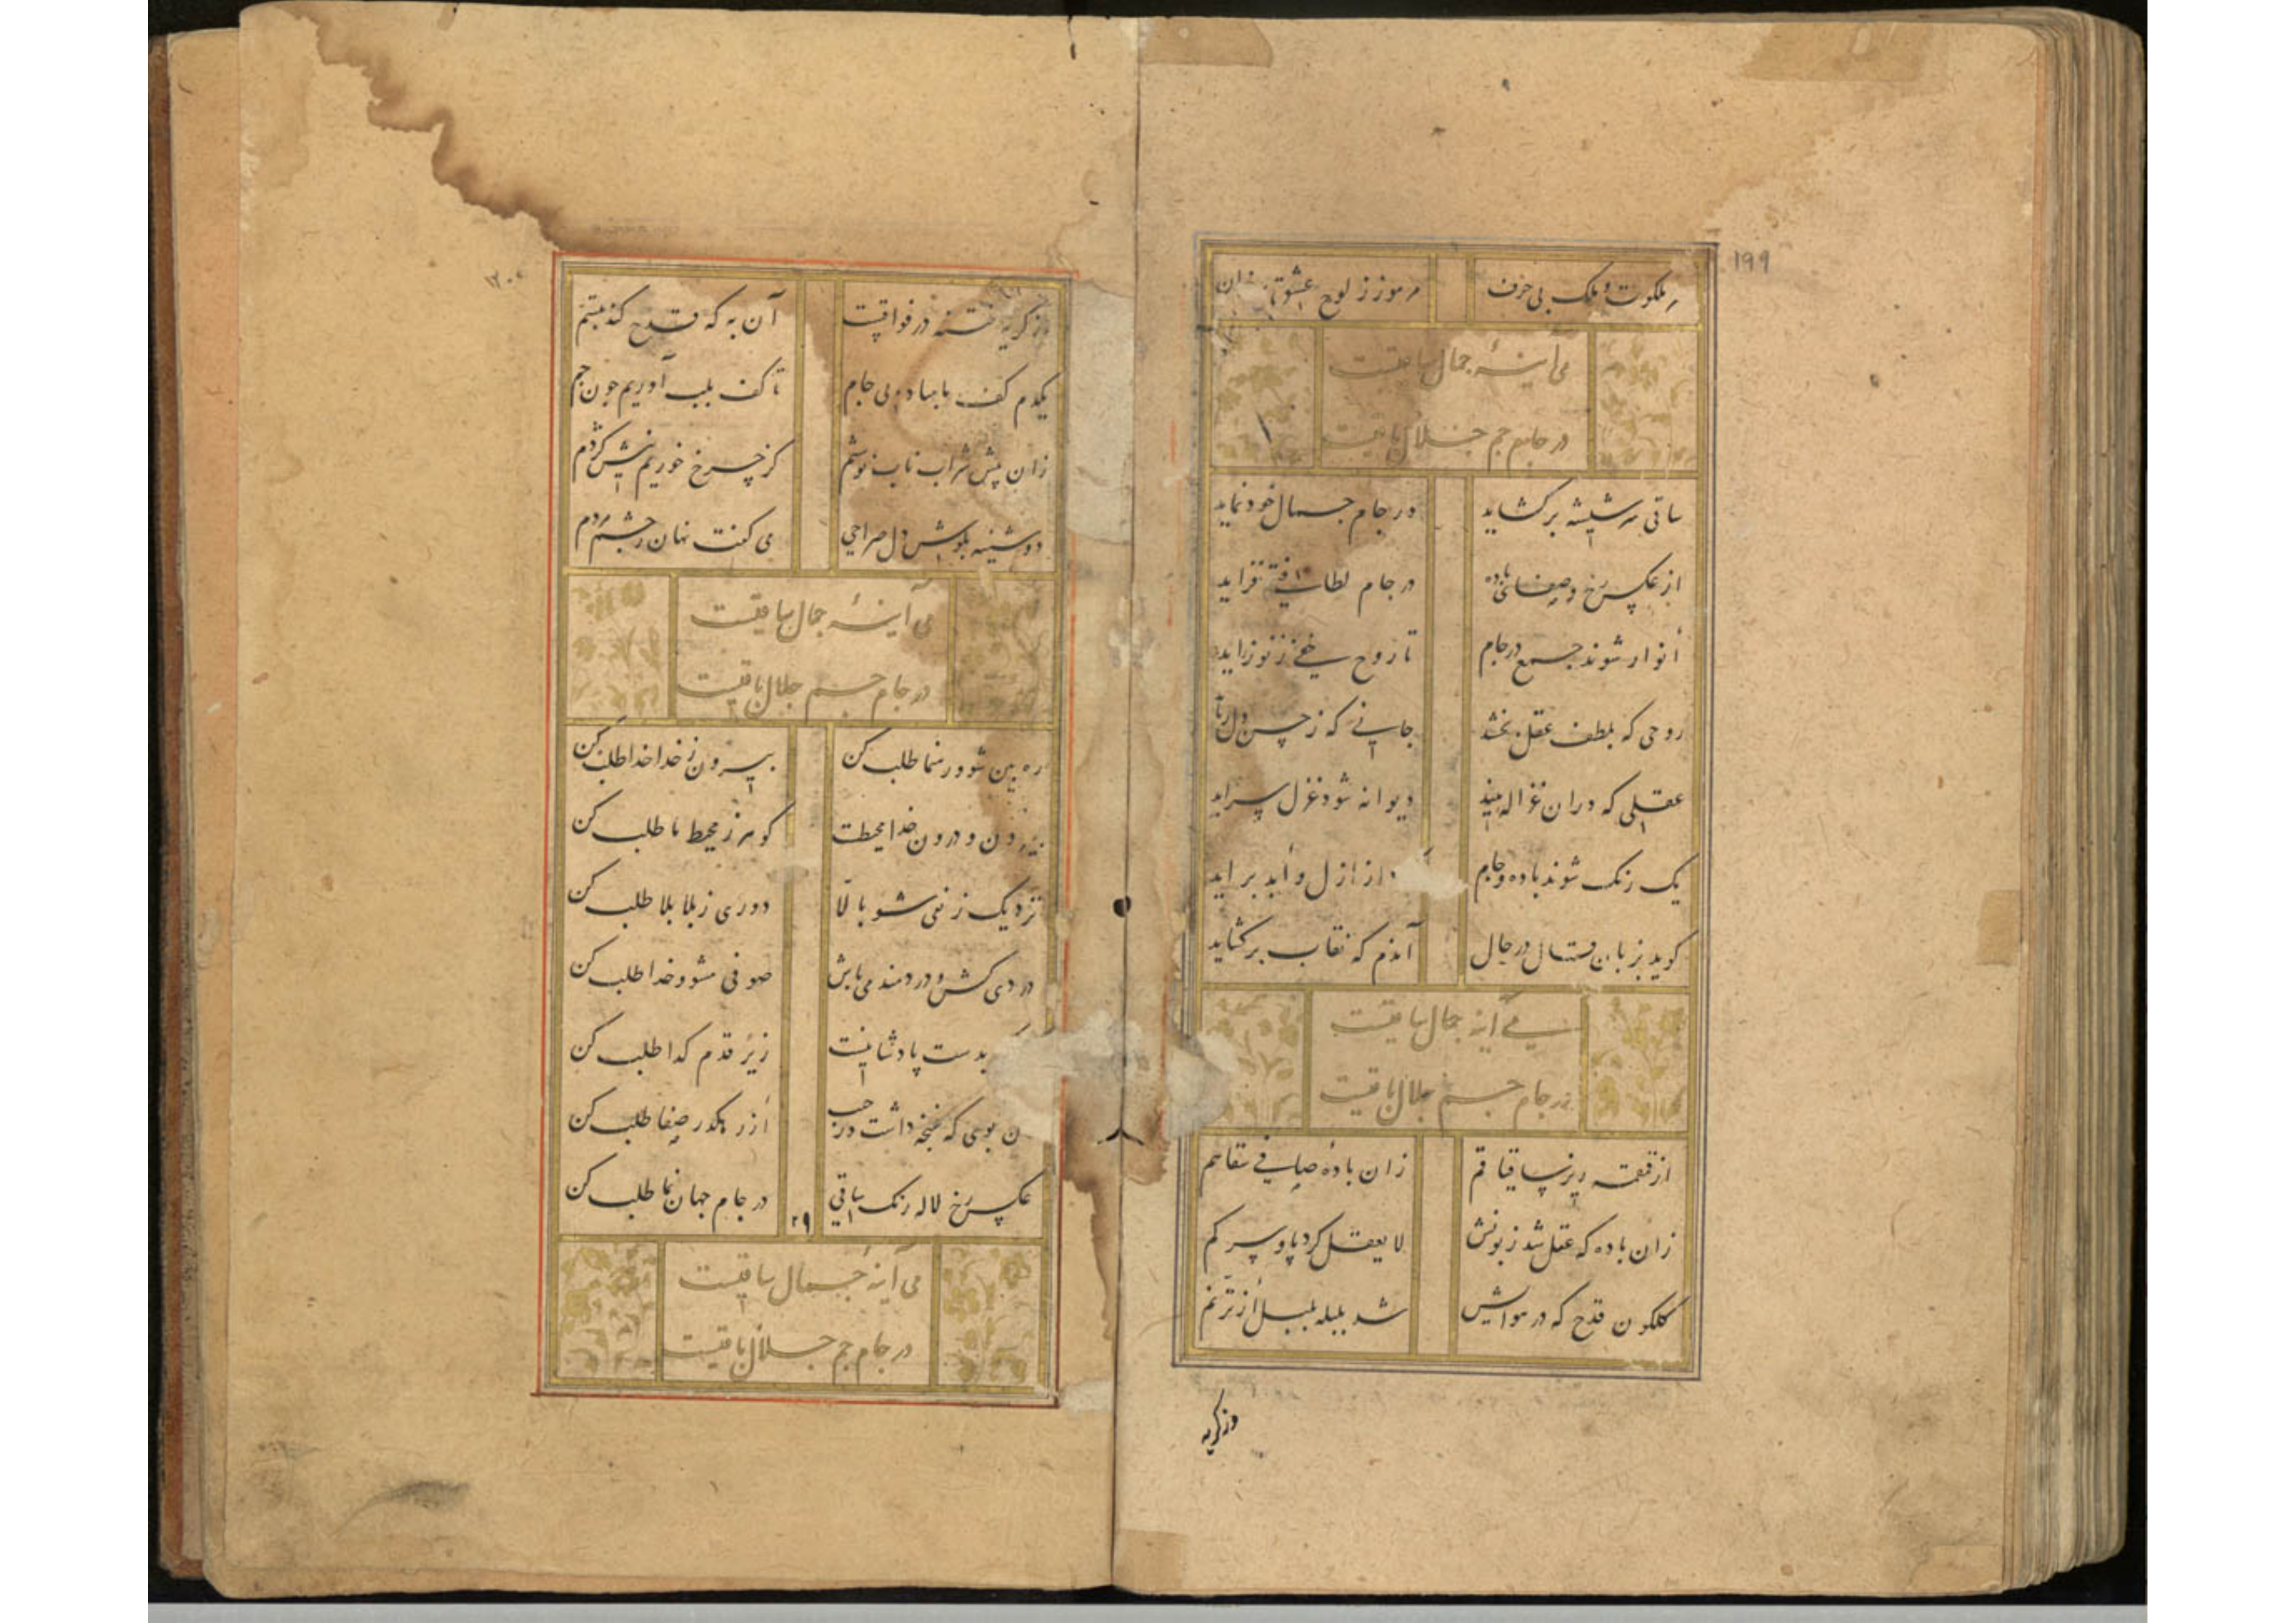 ۱۹۹
ملکوت و ملک بی حرف
مرموز ز لوح عشق
می آینهٔ جمال ساقیست
در جام جم جلال باقیست
ساقی سر شیشه برکشاید
در جام جمال خود نماید
از عکس رخ و صفای باده
در جام لطافتی فزاید
أنوار شوند جمع در جام
تا روح ز نو زاید
روحی که بلطف عقل بخشد
جانی که ز حسن دل رباید
عقلی که دران غزاله بیند
دیوانه شود غزل سراید
یک رنک شوند باده و جام
از ازل و أبد براید
کوید بزبان حال در حال
آندم که نقاب برکشاید
می آینه جمال ساقیست
در جام جم جلال باقیست
از قمقمه ریز ساقیا قم
زان بادهٔ صافی سقاهم
زان باده که عقل شد زبونش
لا یعقل کرد پا و سر کم
کلکون قدح که در هوایش
شد بلبله بلبل از ترنم
وز کریه
۱۲۰۰
وز کریه فتنه در فواقیست
آن به که قدح کند تبسم
یکدم کف با مباد بی جام
تا کف بلب آوریم جون جم
زان پیش شراب ناب نوشیم
کز چرخ خوریم نیش کژدم
دوشینه بکوش دل صراحی
می کفت نهان ز چشم مردم
می آینهٔ جمال ساقیست
در جام جم جلال باقیست
ره بین شو و رهنما طلب کن
بیرون ز خدا خدا طلب کن
بیرون و درون خدا محیطست
کوهر ز محیط ما طلب کن
نزدیک ز نفی شو بالّا
دوری ز بلا بلا طلب کن
دردی کش و دردمند می باش
صوفی مشو و خدا طلب کن
بدست پادشا نیست
زیر قدم کدا طلب کن
ن بوی که غنچه داشت در جیب
از رهکذر صفا طلب کن
عکس رخ لاله رنک ساقی
در جام جهان نما طلب کن
۲۹
می آینهٔ جمال ساقیست
در جام جم جلال باقیست